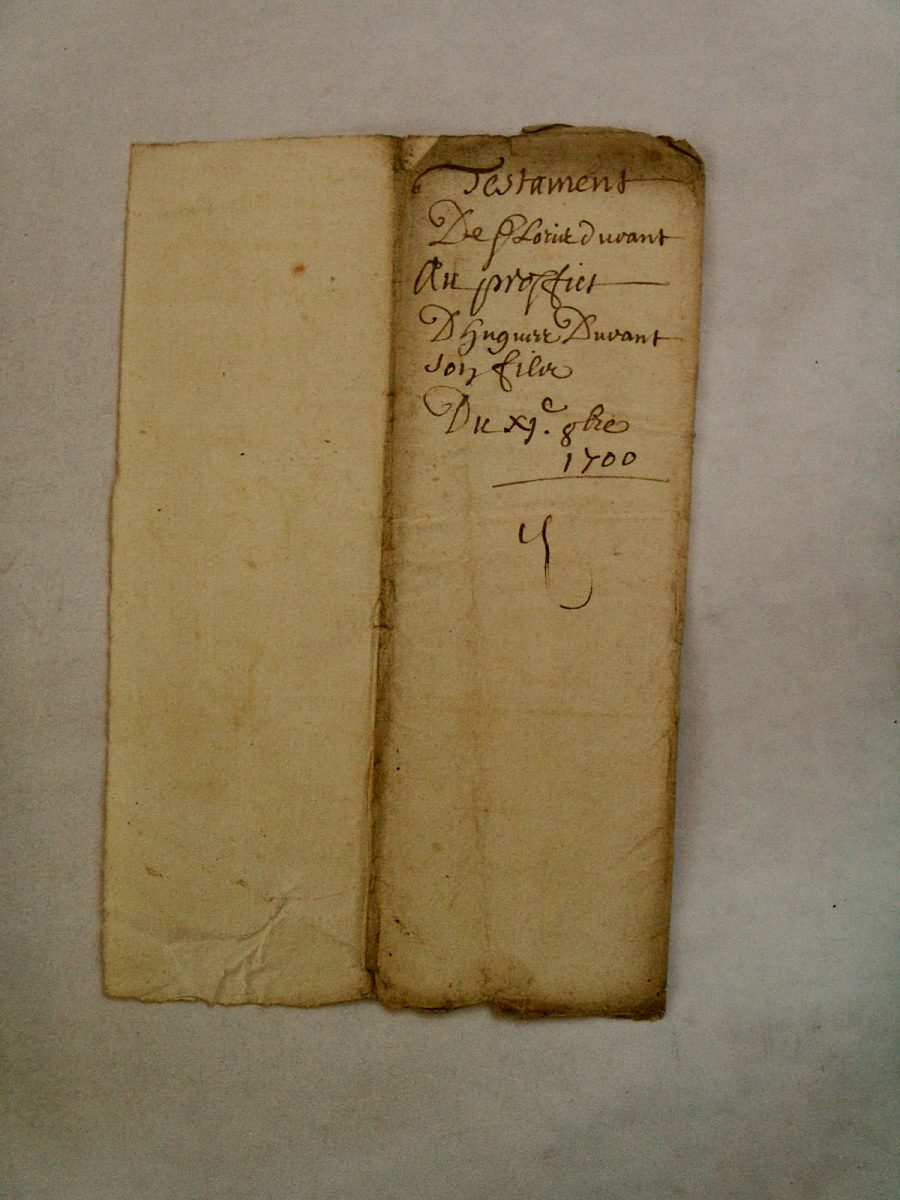 Testament
De florie duvant
Au proffict
D huguees Duvant
son filz
Du xj.e 8bre
1700